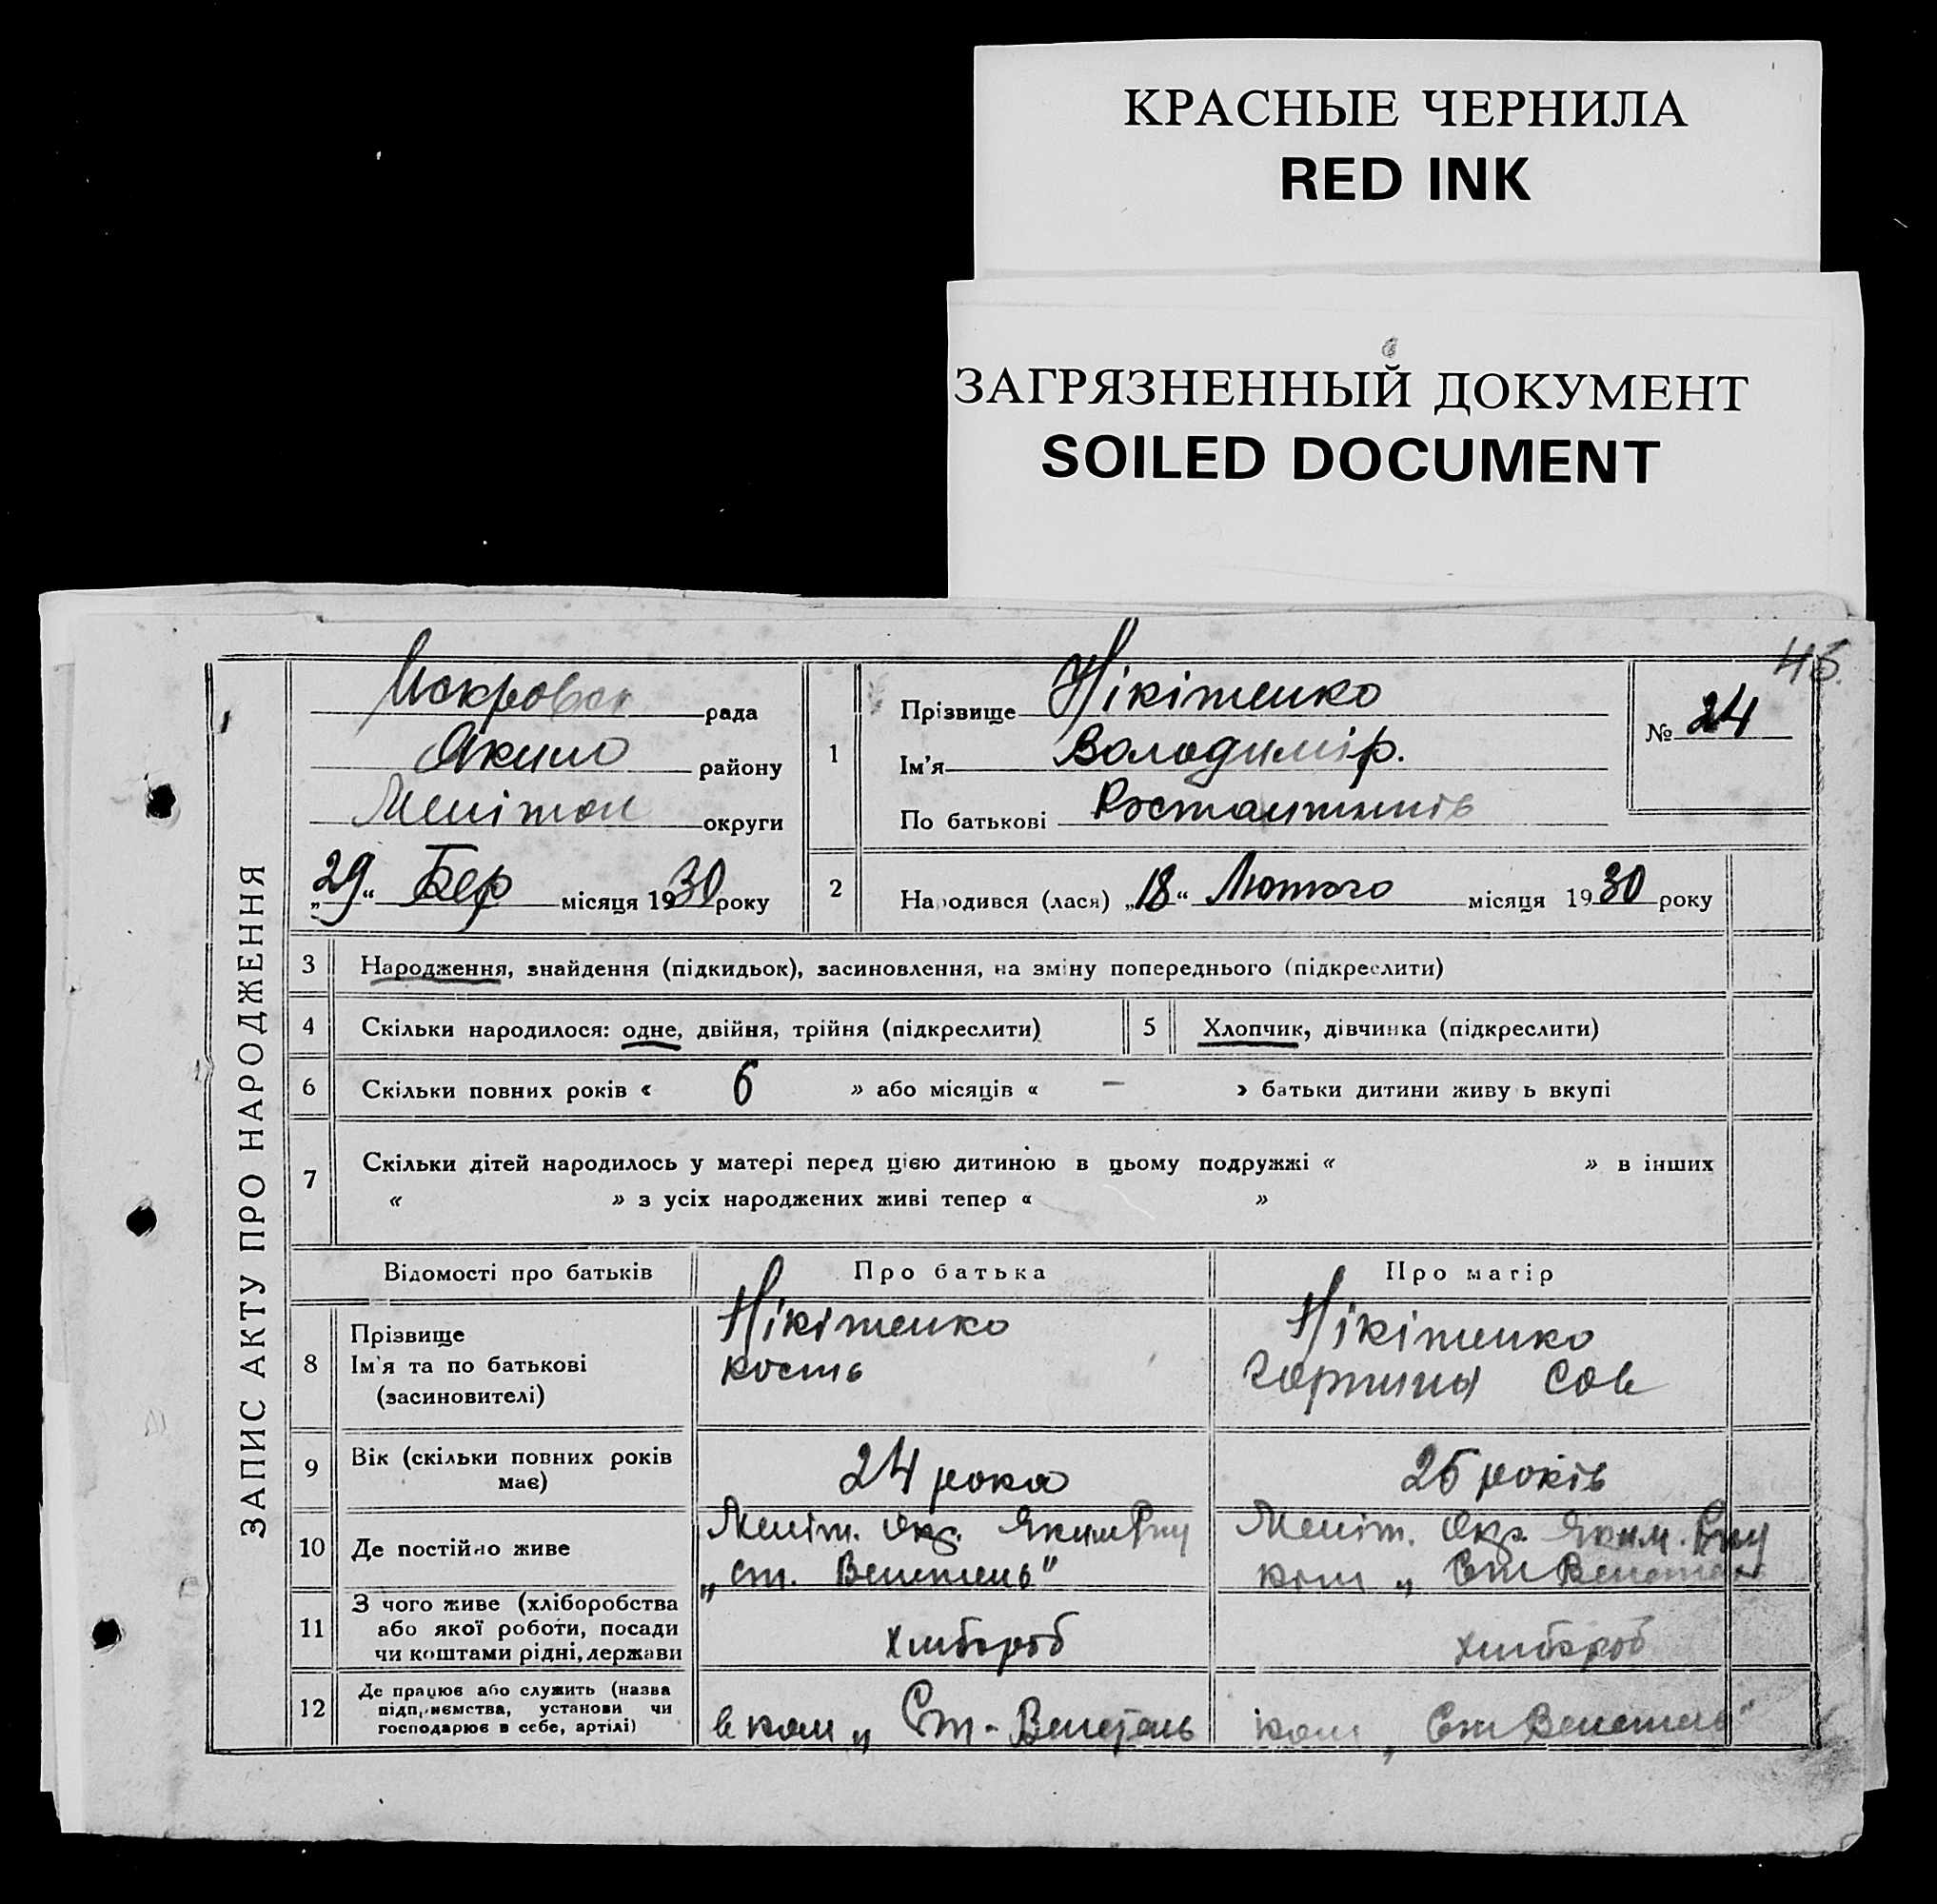 КРАСНЫЕ ЧЕРНИЛА
RED INK
ЗАГРЯЗНЕННЫЙ ДОКУМЕНТ
SOILED DOCUMENT
ЗАПИС АКТУ ПРО НАРОДЖЕННЯ
рада
району
Меліт округи
„29“ Бер місяця 1930 року
1
Прізвище Нікітенко
Ім'я Володимір.
По батькові Костантинів
№ 24
2 Народився (лася) „18“ Лютого місяця 1930 року
3 Народження, знайдення (підкидьок), засиновлення, на зміну попереднього (підкреслити)
4 Скільки народилося: одне, двійня, трійня (підкреслити) 5 Хлопчик, дівчинка (підкреслити)
6 Скільки повних років « 6 » або місяців « — » батьки дитини живу ь вкупі
7 Скільки дітей народилось у матері перед цією дитиною в цьому подружжі « » в інших
« » з усіх народжених живі тепер « »
Відомості про батьків Про батька Про матір
8 Прізвище
Ім'я та по батькові
(засиновителі)
Нікітенко
Кость
Нікітенко
Сав
9 Вік (скільки повних років має)
24 рока
25 років
10 Де постійно живе
Меліт. Окр.
„Ст.
Меліт. Окр. Яким.
ком „Ст
11 З чого живе (хліборобства
або якої роботи, посади
чи коштами рідні, держави
хлібороб
хлібороб
12 Де працює або служить (назва
підприємства, установи чи
господарює в себе, артілі)
в ком „Ст.
ком „Ст